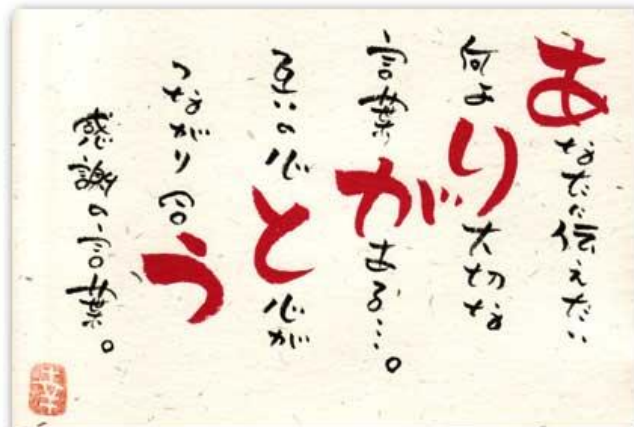 あなたに伝えたい
何より大切な
言葉がある…。
互いの心と心が
つながり合う
感謝の言葉。
幸